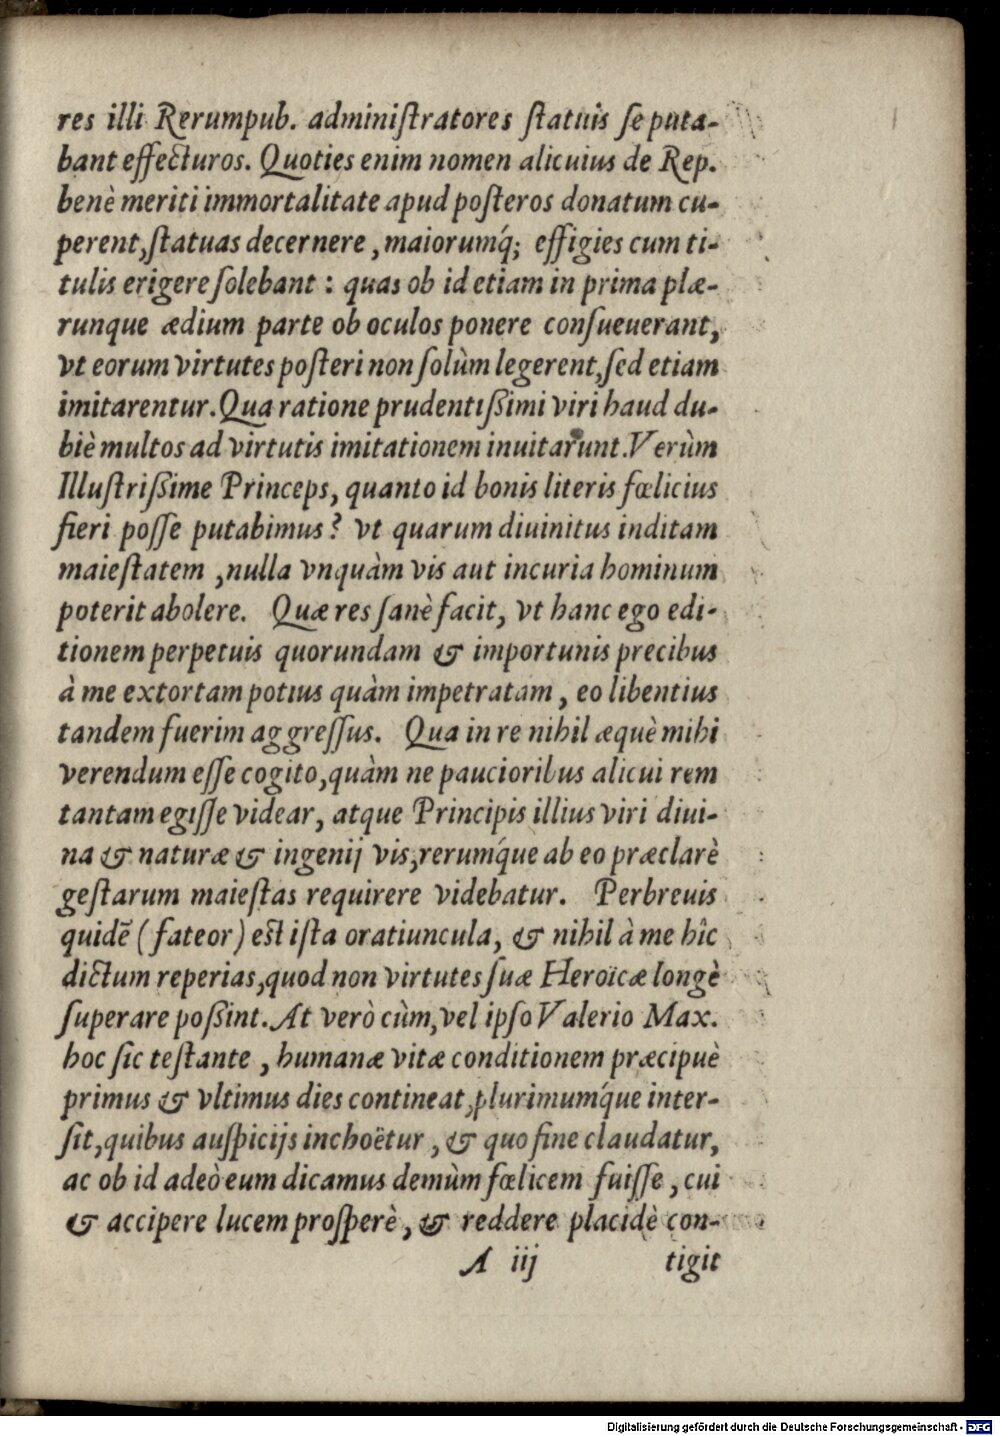 res illi Rerumpub. adminiſtratores ſtatuis ſe puta-
bant effecturos. Quoties enim nomen alicuius de Rep.
benè meriti immortalitate apud poſteros donatum cu-
perent, ſtatuas decernere, maiorumq́; effigies cum ti-
tulis erigere ſolebant: quas ob id etiam in prima plæ-
runque ædium parte ob oculos ponere conſueuerant,
vt eorum virtutes poſteri non ſolùm legerent, ſed etiam
imitarentur. Qua ratione prudentißimi viri haud du-
biè multos ad virtutis imitationem inuitarunt. Verùm
Illuſtrißime Princeps, quanto id bonis literis fœlicius
fieri poſſe putabimus? vt quarum diuinitus inditam
maieſtatem, nulla vnquàm vis aut incuria hominum
poterit abolere. Quæ res ſanè facit, vt hanc ego edi-
tionem perpetuis quorundam & importunis precibus
à me extortam potius quàm impetratam, eo libentius
tandem fuerim aggreſſus. Qua in re nihil æquè mihi
verendum eſſe cogito, quàm ne paucioribus alicui rem
tantam egiſſe videar, atque Principis illius viri diui-
na & naturæ & ingenij vis, rerumq́ue ab eo præclarè
geſtarum maieſtas requirere videbatur. Perbreuis
quidẽ (fateor) eſt iſta oratiuncula, & nihil à me hîc
dictum reperias, quod non virtutes ſuæ Heroïcæ longè
ſuperare poßint. At verò cùm, vel ipſo Valerio Max.
hoc ſic teſtante, humanæ vitæ conditionem præcipuè
primus & vltimus dies contineat, plurimumq́ue inter-
ſit, quibus auſpicijs inchoëtur, & quo fine claudatur,
ac ob id adeò eum dicamus demùm fœlicem fuiſſe, cui
& accipere lucem proſperè, & reddere placidè con-
A iij tigit
Digitalisierung gefördert durch die Deutsche Forschungsgemeinschaft - DFG